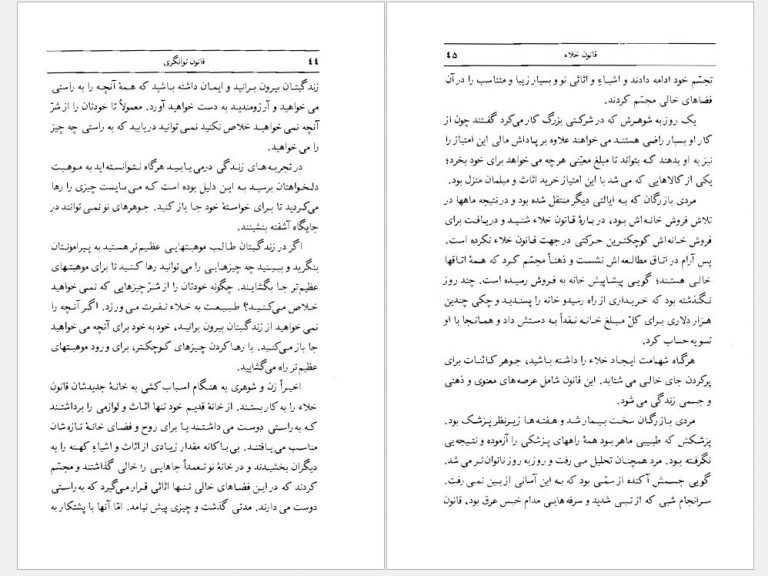 ۴۴ قانون توانگری
زندگیتان بیرون برانید و ایمان داشته باشید که همهٔ آنچه را به راستی
می خواهید و آرزومندید به دست خواهید آورد. معمولاً تا خودتان را از شرّ
آنچه نمی خواهید خلاص نکنید نمی توانید دریابید که به راستی چه چیز
را می خواهید.
در تجربه های زندگی درمی یابید هرگاه نتوانسته اید به موهبت
دلخواهتان برسید به این دلیل بوده است که می بایست چیزی را رها
می کردید تا برای خواستهٔ خود جا باز کنید. جوهرهای نو نمی توانند در
جایگاه آشفته بنشینند.
اگر در زندگیتان طالب موهبتهایی عظیم تر هستید به پیرامونتان
بنگرید و ببینید چه چیزهایی را می توانید رها کنید تا برای موهبتهای
عظیم تر جا بگشایند. چگونه خودتان را از شرّ چیزهایی که نمی خواهید
خلاص می کنید؟ طبیعت به خلاء نفرت می ورزد. اگر آنچه را
نمی خواهید از زندگیتان بیرون برانید، خود به خود برای آنچه می خواهید
جا باز می کنید. با رها کردن چیزهای کوچکتر، برای ورود موهبتهای
عظیم تر راه می گشایید.
اخیراً زن و شوهری به هنگام اسباب کشی به خانهٔ جدیدشان قانون
خلاء را به کار بستند. از خانهٔ قدیم خود تنها اثاث و لوازمی را برداشتند
که به راستی دوست می داشتند یا برای روح و فضای خانهٔ تازه شان
مناسب می یافتند. بی باکانه مقدار زیادی از اثاث و اشیاءِ کهنه را به
دیگران بخشیدند و در خانهٔ نو تعمداً جاهایی را خالی گذاشتند و مجسّم
کردند که در این فضاهای خالی تنها اثاثی قرار می گیرد که به راستی
دوست می دارند. مدتی گذشت و چیزی پیش نیامد. امّا آنها با پشتکار به
قانون خلاء ۴۵
تجسّم خود ادامه دادند و اشیاء و اثاثی نو و بسیار زیبا و متناسب را در آن
فضاهای خالی مجسّم کردند.
یک روز به شوهرش که در شرکتی بزرگ کار می کرد گفتند چون از
کار او بسیار راضی هستند می خواهند علاوه بر پاداش مالی این امتیاز را
نیز به او بدهند که بتواند تا مبلغ معیّنی هرچه می خواهد برای خود بخرد؛
یکی از کالاهایی که می شد با این امتیاز خرید اثاث و مبلمان منزل بود.
مردی بازرگان که به ایالتی دیگر منتقل شده بود و در نتیجه ماهها در
تلاش فروش خانه اش بود، دربارهٔ قانون خلاء شنید و دریافت برای
فروش خانه اش کوچکترین حرکتی در جهت قانون خلاء نکرده است.
پس آرام در اتاق مطالعه اش نشست و ذهناً مجسّم کرد که همهٔ اتاقها
خالی هستند؛ گویی پیشاپیش خانه به فروش رسیده است. چند روز
نگذشته بود که خریداری از راه رسید و خانه را پسندید و چکی چندین
هزار دلاری برای کلّ مبلغ خانه نقداً به دستش داد و همانجا با او
تسویه حساب کرد.
هرگاه شهامت ایجاد خلاء را داشته باشید، جوهر کائنات برای
پرکردن جای خالی می شتابد. این قانون شامل عرصه های معنوی و ذهنی
و جسمی زندگی می شود.
مردی بازرگان سخت بیمار شد و هفته ها زیرنظر پزشک بود.
پزشکش که طبیبی ماهر بود همهٔ راههای پزشکی را آزموده و نتیجه یی
نگرفته بود. مرد همچنان تحلیل می رفت و روز به روز ناتوان تر می شد.
گویی جسمش آکنده از سمّی بود که به این آسانی از بین نمی رفت.
سرانجام شبی که از تبی شدید و سرفه هایی مدام خیس عرق بود، قانون